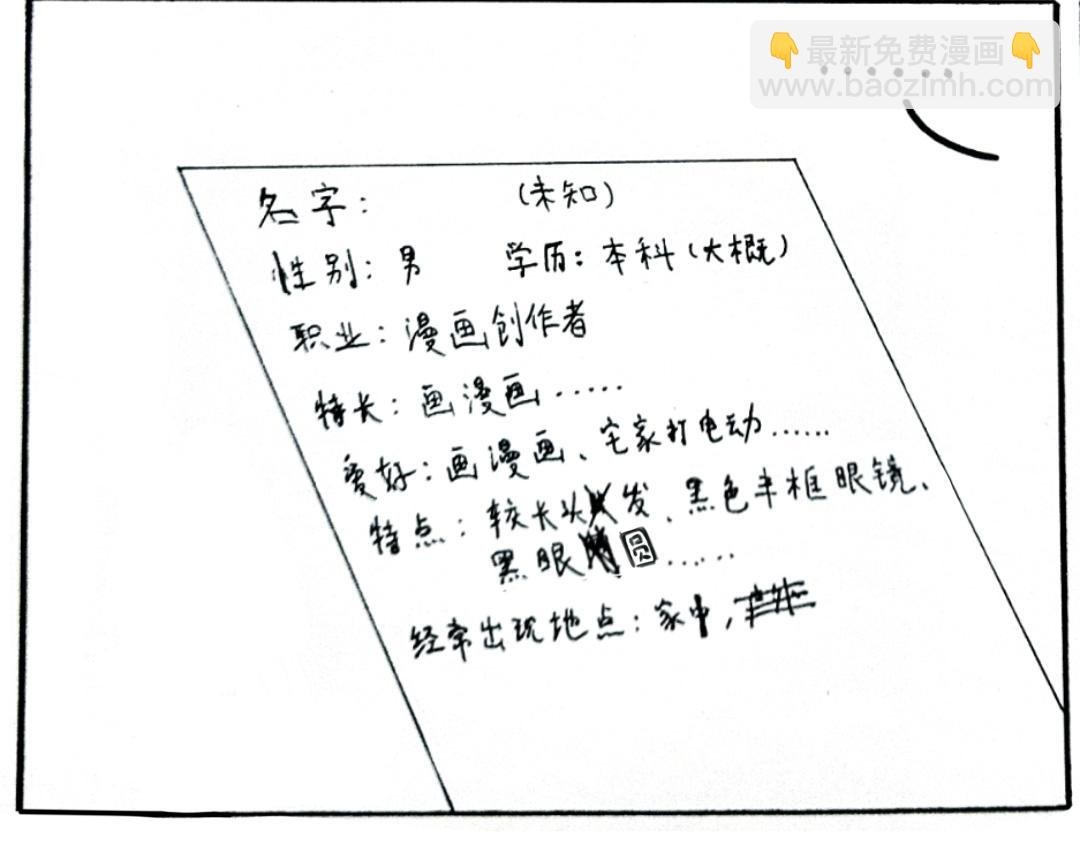 👇最新免费漫画👇
www.baozimh.com
......
名字: (未知)
性别: 男 学历: 本科(大概)
职业: 漫画创作者
特长: 画漫画......
爱好: 画漫画、宅家打电动......
特点: 较长头发、黑色半框眼镜、
黑眼圆......
经常出现地点: 家中,